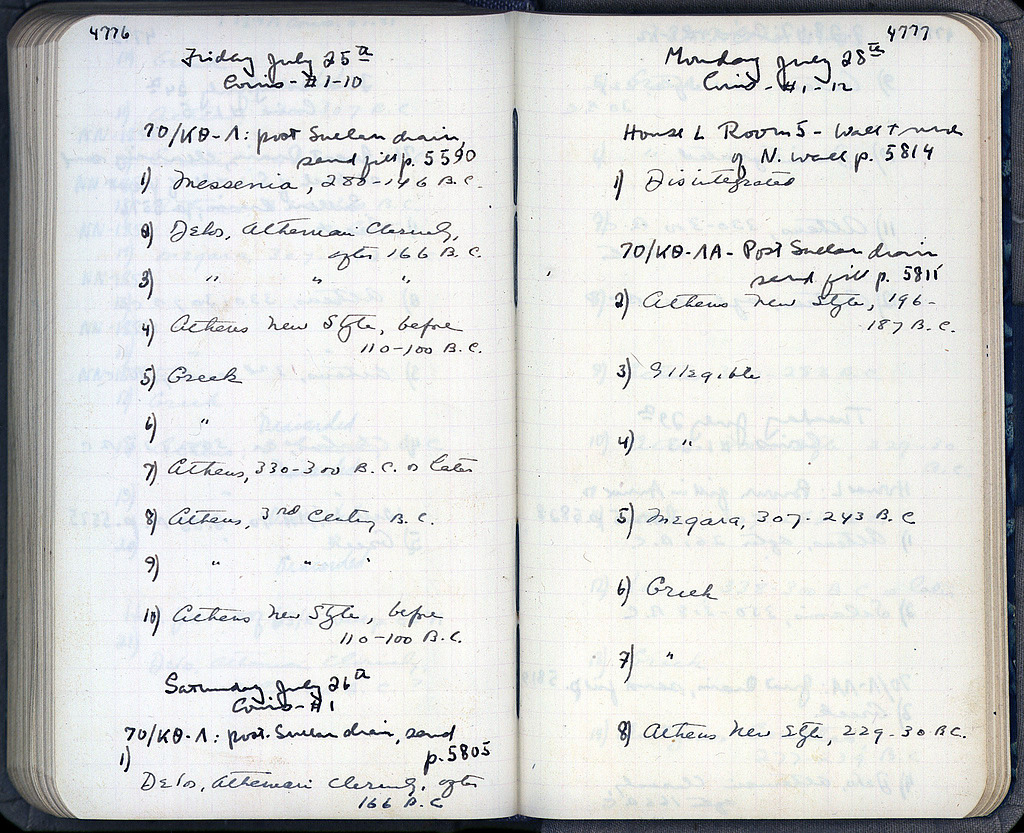 4776
Friday July 25th
Coins - #1-10
70/ΚΘ-Λ: post Sullan drain,
sand fill p. 5590
1) Messenia, 280-146 B.C.
2) Delos, Athenian Cleruchy,
after 166 B.C.
3) " " "
4) Athens New Style, before
110-100 B.C.
5) Greek
6) "
7) Athens, 330-300 B.C. or later
8) Athens, 3rd Century B.C.
9) " " "
10) Athens New Style, before
110-100 B.C.
Saturday July 26th
Coins - #1
70/ΚΘ-Λ: post-Sullan drain, sand
1) p. 5805
Delos, Athenian Cleruchy, after
166 B.C.
4777
Monday July 28th
Coins - #1-12
House L Room 5 - Wall
of N. wall p. 5814
1) Disintegrated
70/ΚΘ-ΛΑ - Post Sullan drain
sand fill p. 5815
2) Athens New Style, 196-
187 B.C.
3) Illegible
4) "
5) Megara, 307-243 B.C
6) Greek
7) "
8) Athens New Style, 229-30 B.C.